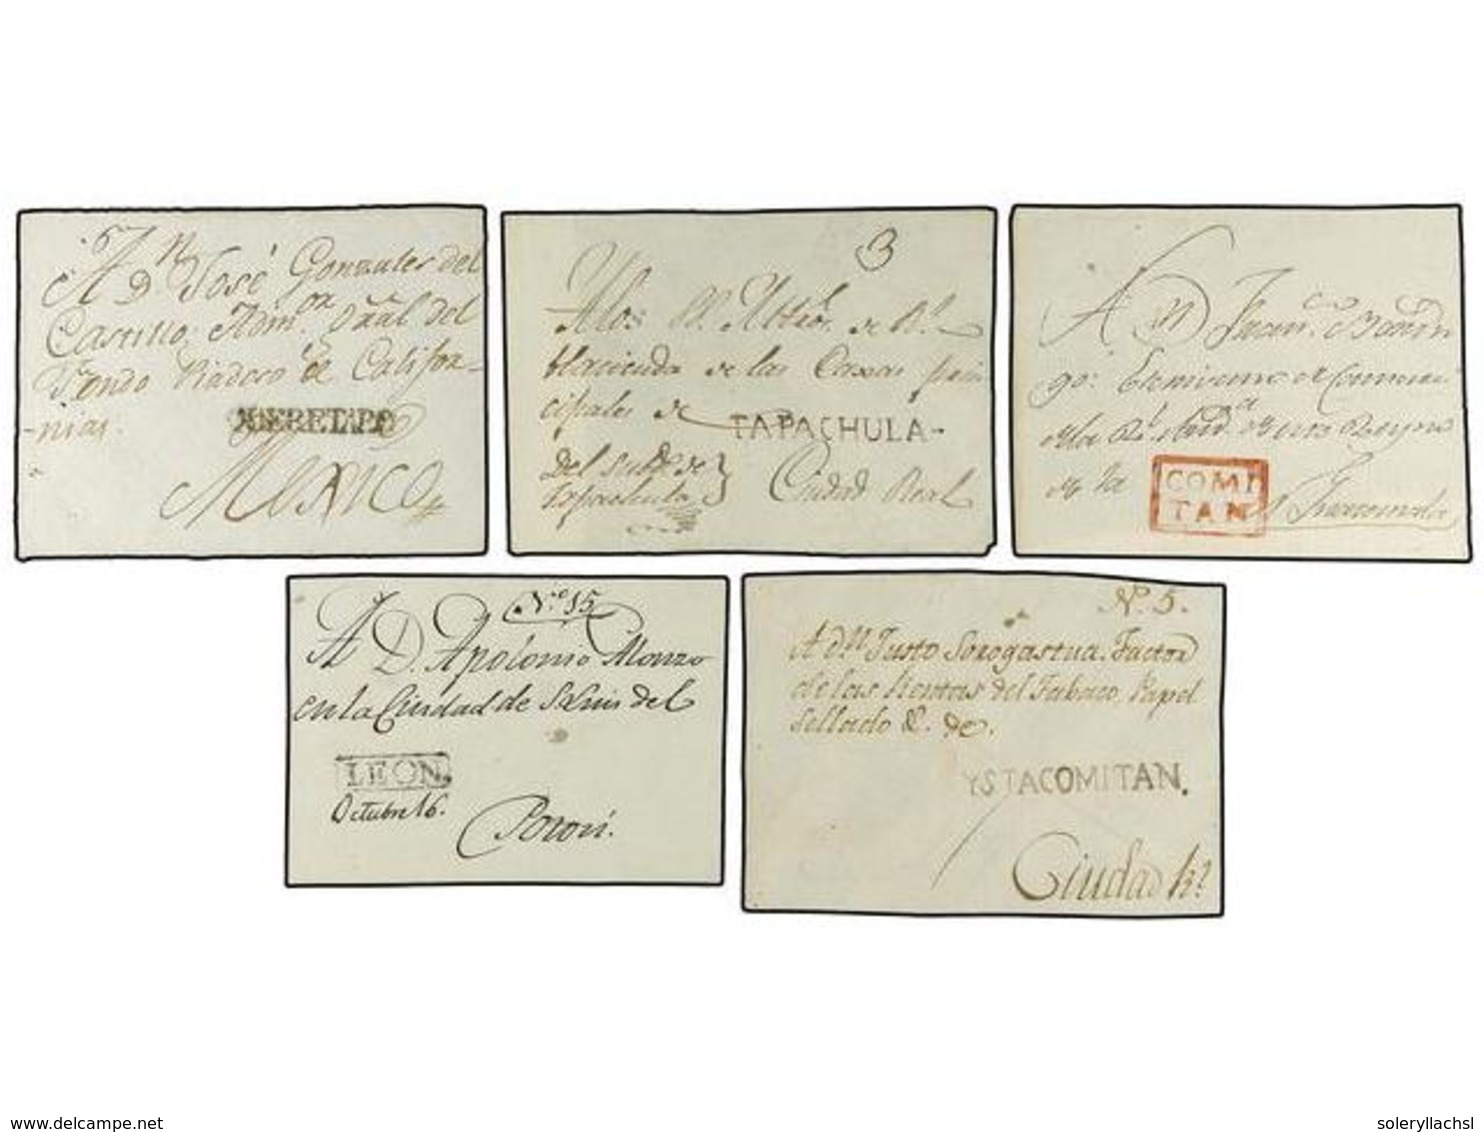 A D.n José Gonzales del
Castillo, Adm.or Gral del
Fondo Piadoso de Califor-
-nias.
QUERETARO
Mexico
3
A los S.S. Mtros de Rl.
Hacienda de las Caxas prin
cipales de
TAPACHULA-
Del Subde. de
Tapachula
Ciudad Real
A Dn Juan
de la Rl. Aud.a de este Reyno
en la
COMI
TAN
No. 15
A D. Apolonio Alonzo
en la Ciudad de S Luis del
LEON.
Octubre 16.
Potosi.
No. 5.
A dn Justo Sorogastua. Factor
de las Rentas del Tabaco, Papel
Sellado &. de.
YSTACOMITAN.
Ciudad Rl.
www.delcampe.net
soleryllachsl